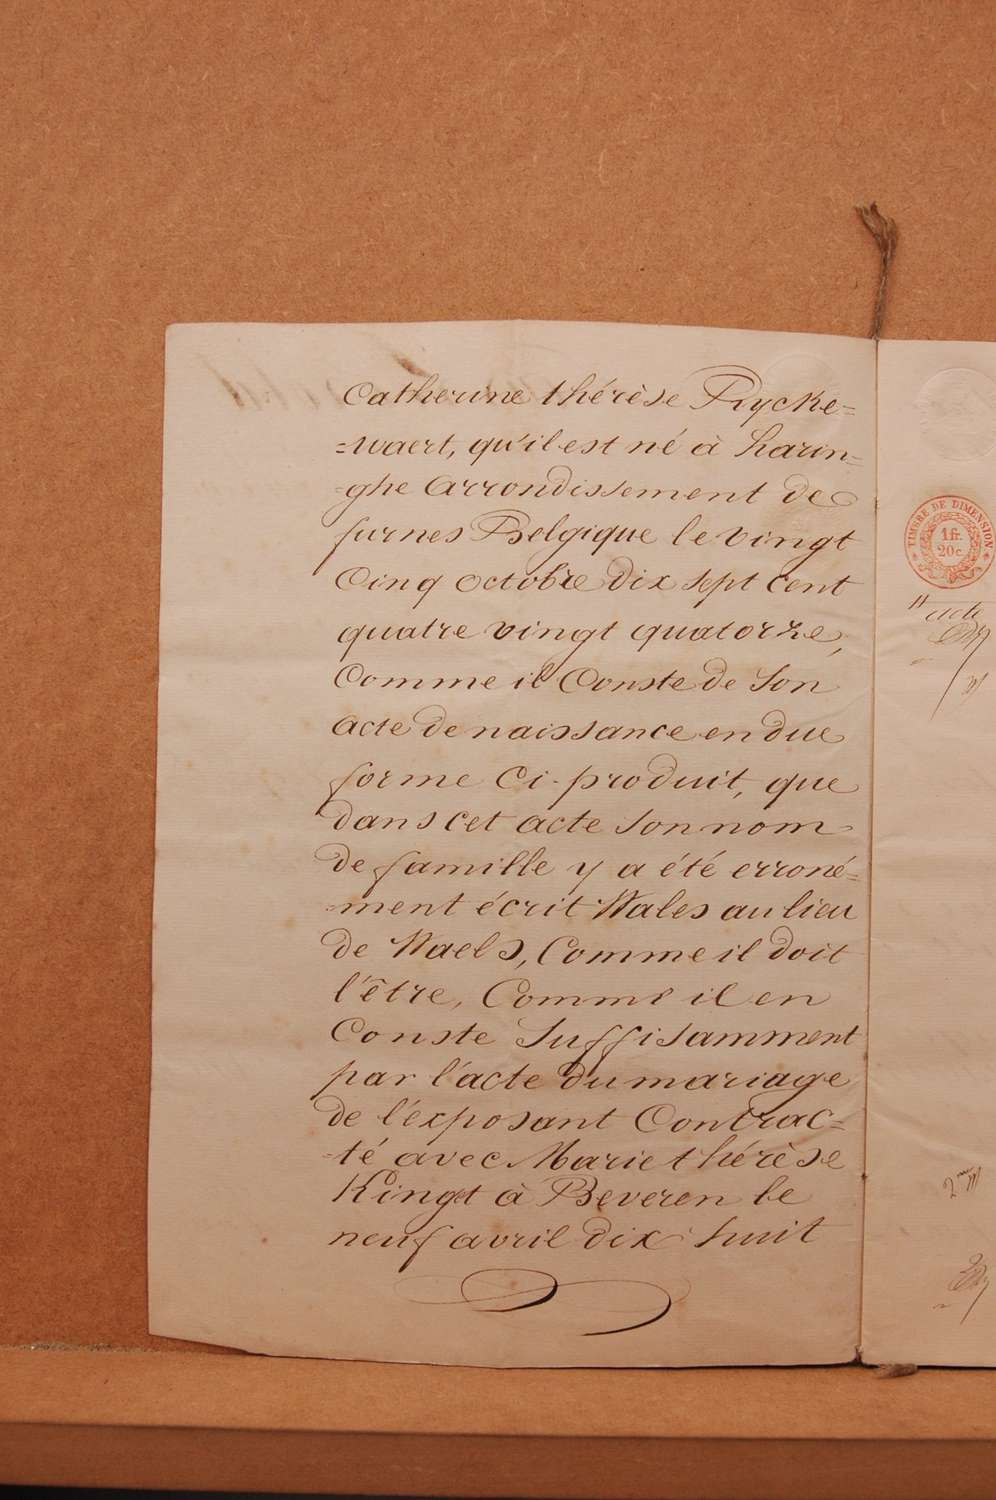 Catherine thérèse Rycke=
=waert, qu'il est né à harin=
=ghe arrondissement de
furnes Belgique le vingt
Cinq octobre dix sept cent
quatre vingt quatorze,
Comme il Conste de Son
acte de naissance en due
forme Ci-produit, que
dans cet acte son nom
de famille y a été erroné=
=ment écrit Wales au lieu
de Waels, Comme il doit
l'être, Comme il en
Conste Suffisamment
par l'acte du mariage
de l'exposant Contrac=
=té avec Marie thérèse
Kinget à Beveren le
neuf avril dix huit
TIMBRE DE DIMENSION
1 fr.
20 c.
acte